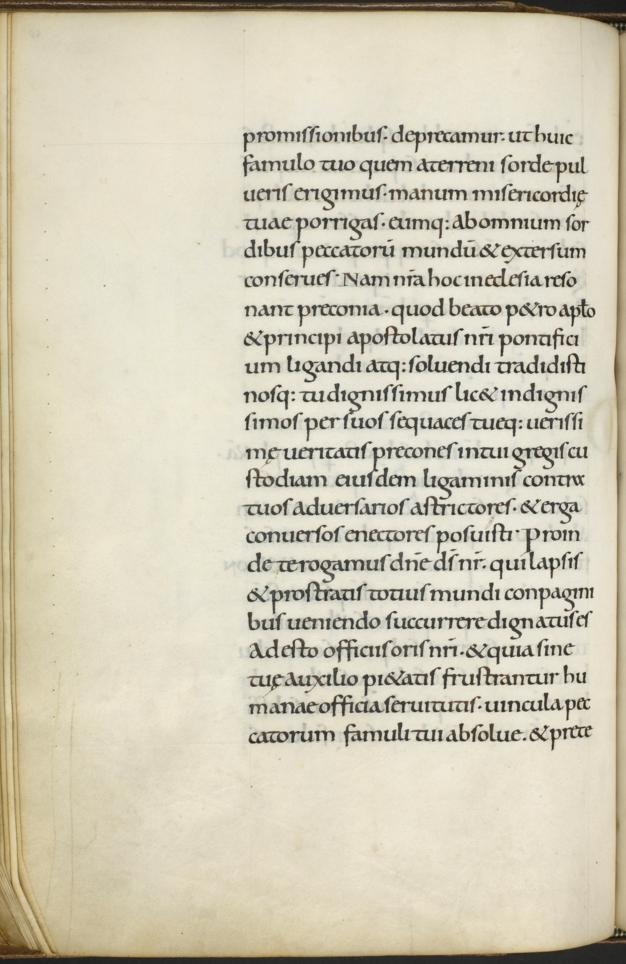 promissionibus· deprecamur· ut huic
famulo tuo quem aterreni sorde pul
ueris erigimus· manum misericordię
tuae porrigas· eumq: ab omnium sor
dibus peccatorū mundū & extersum
conserues· Nam nr̄a hoc in eclesia reso
nant preconia· quod beato p&ro aptō
& principi apostolatus nr̄i pontifici
um ligandi atq: soluendi tradidisti
nosq: tu dignissimus lic& indignis
simos per suos sequaces tueq: uerissi
mę ueritatis precones in tui gregis cu
stodiam eiusdem ligaminis contra
tuos adversarios astrictores· & erga
conuersos enectores posuisti· Proin
de te rogamus dn̄e ds̄ nr̄· qui lapsis
& prostratis totius mundi conpagini
bus ueniendo succurrere dignatus es
Adesto officiis oris nr̄i· & quia sine
tuę auxilio pi&atis frustrantur hu
manae officia seruitutis· uincula pec
catorum famuli tui absolue. & prete